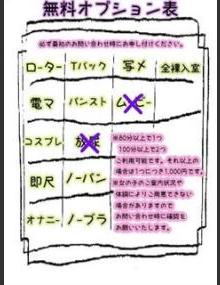 無料オプション表
必ず最初のお問い合わせ時にお申し付けください。
ローター Tバック 写メ 全裸入室
電マ パンスト ムービー
コスプレ 放尿 ※80分以上で1つ
100分以上で2つ
ご利用可能です。それ以上の
場合は1つにつき1,000円です。
即尺 ノーパン ※女の子のご案内状況や
体調によりご用意できない
場合がありますので
オナニー ノーブラ お問い合わせ時に確認を
お願いいたします。